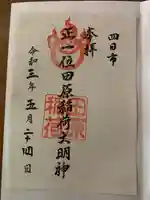 四日市
奉拝
正一位田原稲荷大明神
令和三年五月二十四日